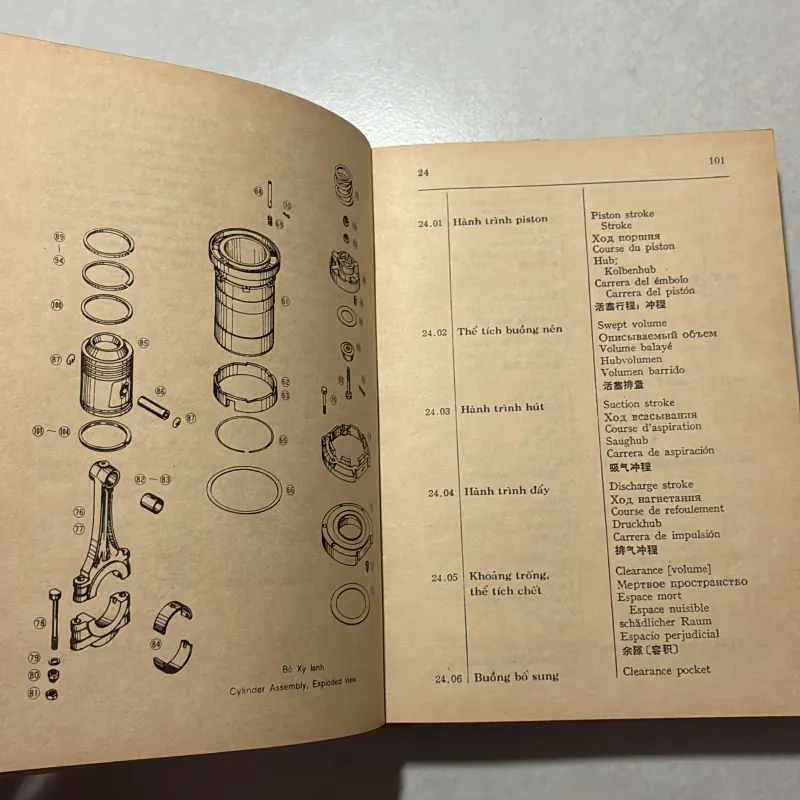 89
~
94
100
87
85
86
87
101 ~ 104
82 ~ 83
76
77
78
79
80
81
84
68
70
69
61
62
63
65
66
71
Bộ Xy lanh
Cylinder Assembly, Exploded view
24
101
24.01
Hành trình piston
Piston stroke
Stroke
Ход поршня
Course du piston
Hub;
Kolbenhub
Carrera del émbolo
Carrera del pistón
活塞行程；冲程
24.02
Thể tích buồng nén
Swept volume
Описываемый объем
Volume balayé
Hubvolumen
Volumen barrido
活塞排量
24.03
Hành trình hút
Suction stroke
Ход всасывания
Course d'aspiration
Saughub
Carrera de aspiración
吸气冲程
24.04
Hành trình đẩy
Discharge stroke
Ход нагнетания
Course de refoulement
Druckhub
Carrera de impulsión
排气冲程
24.05
Khoảng trống,
thể tích chết
Clearance [volume]
Мертвое пространство
Espace mort
Espace nuisible
schädlicher Raum
Espacio perjudicial
余隙〔容积〕
24.06
Buồng bổ sung
Clearance pocket